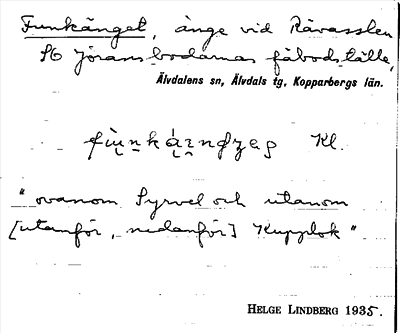 Funkänget, änge vid Rävasslen
SO Jöransbodarnas fäbodställe,
Älvdalens sn, Älvdals tg, Kopparbergs län.
Kl.
"ovanom Syrvel och utanom
[utanför, nedanför] Kupplok"
HELGE LINDBERG 1935.